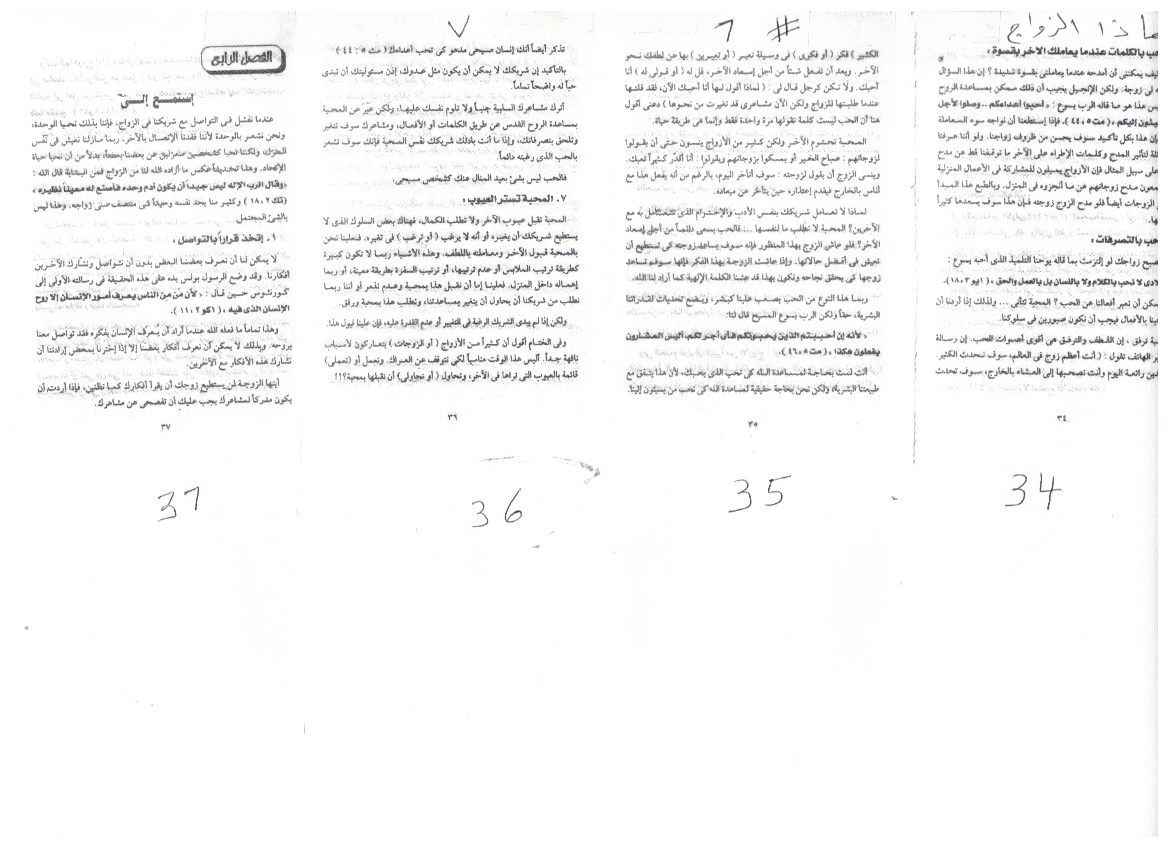 ماذا الزواج
حب بالكلمات عندما يعاملك الآخر بقسوة :
يمكننى أن أمدحه عندما يعاملنى بقسوة شديدة ؟ إن هذا السؤال
له لى زوجة: ولكن الإنجيل يجيب أن ذلك ممكن بمساعدة الروح
هذا هو ما قاله الرب يسوع : « أحبوا أعداءكم .. وصلوا لأجل
يسيئون إليكم ، ( مت ٥ : ٤٤ ). فإذا إستطعنا أن نواجه سوء المعاملة
فإن هذا بكل تأكيد سوف يحسن من ظروف زواجنا. ولو أننا عرفنا
لتأثير المدح وكلمات الإطراء على الآخر ما توقفنا قط عن مدح
على سبيل المثال فإن الأزواج يميلون للمشاركة فى الأعمال المنزلية
يسمعون مدح زوجاتهم عن ما أنجزوه فى المنزل. وبالطبع هذا المبدأ
الزوجات أيضاً فلو مدح الزوج زوجته فإن هذا سوف يسعدها كثيراً
حب بالتصرفات :
يصبح زواجك لو إلتزمت بما قاله يوحنا التلميذ الذى أحبه يسوع :
أولادى لا نحب بالكلام ولا باللسان بل بالعمل والحق ، ( ١يو ٣ : ١٨ ).
يمكن أن تعبر أفعالنا عن الحب ؟ المحبة تتأنى ... ولذلك إذا أردنا أن
بالأفعال فيجب أن نكون صبورين فى سلوكنا.
ترفق ، إن اللطف والترفق هى أقوى أصوات الحب. إن رسالة
الهاتف تقول : ( أنت أعظم زوج فى العالم، سوف نتحدث الكثير
رائعة اليوم وأنت تصحبها إلى العشاء بالخارج، سوف تحدث
٣٤
34
#
الكثير ) فكر ( أو فكرى ) فى وسيلة تعبر ( أو تعبرين ) بها عن لطفك نحو
الآخر. وبعد أن تفعل شيئاً من أجل إسعاد الآخر، قل له ( أو قولى له ) أنا
أحبك. ولا تكن كرجل قال لى : ( لماذا أقول لها أنا أحبك الآن، لقد قلتها
عندما طلبتها للزواج ولكن الآن مشاعرى قد تغيرت من نحوها ) دعنى أقول
هنا أن الحب ليست كلمة نقولها مرة واحدة فقط وإنما هى طريقة حياة.
المحبة تحترم الآخر ولكن كثير من الأزواج ينسون حتى أن يقولوا
لزوجاتهم : صباح الخير أو يمسكوا بزوجاتهم ويقولوا : أنا أقدر كثيراً تعبك.
وينسى الزوج أن يقول لزوجته : سوف أتأخر اليوم، بالرغم من أنه يفعل هذا مع
أناس بالخارج فيقدم إعتذار، حين يتأخر عن ميعاده.
لماذا لا تعامل شريكك بنفس الأدب والإحترام الذى تتعامل به مع
الآخرين؟ المحبة لا تطلب ما لنفسها ... فالحب يسعى دائماً من أجل إسعاد
الآخر؟ فلو عاش الزوج بهذا المنظور فإنه سوف يساعد زوجته كى تستطيع أن
تعيش فى أفضل حالاتها. وإذا عاشت الزوجة بهذا الفكر فإنها سوف تساعد
زوجها كى يحقق نجاحه ونكون بهذا قد عشنا الكلمة الإلهية كما أراد لنا الله.
ربما هذا النوع من الحب يصعب علينا كبشر، ويضع تحديات لقدراتنا
البشرية، حقاً ولكن الرب يسوع المسيح قال لنا:
« لأنه إن أحببتم الذين يحبونكم فأى أجر لكم. أليس العشارون
يفعلون هكذا ، ( مت ٥ : ٤٦ ).
أنت لست بحاجة لمساعدة الله كى تحب الذى يحبك، لأن هذا يتفق مع
طبيعتنا البشرية، ولكن نحن بحاجة حقيقية لمساعدة الله كى نحب من يسيئون إلينا.
٣٥
35
٧
تذكر أيضاً أنك إنسان مسيحى مدعو كى تحب أعداءك ( مت ٥ : ٤٤ )
بالتأكيد إن شريكك لا يمكن أن يكون مثل عدوك، إذن مسئوليتك أن تبدى
حباً له واضحاً تماماً.
أترك مشاعرك السلبية جنباً ولا تلوم نفسك عليها، ولكن عبّر عن المحبة
بمساعدة الروح القدس عن طريق الكلمات أو الأفعال، ومشاعرك سوف تتغير
وتلحق بتصرفاتك، وإذا ما أنت بادلك شريكك نفس المحبة فإنك سوف تشعر
بالحب الذى رغبته دائماً.
فالحب ليس بشئ بعيد المنال عنك كشخص مسيحى.
٧ـ المحبة تستر العيوب :
المحبة تقبل عيوب الآخر ولا تطلب الكمال، فهناك بعض السلوك الذى لا
يستطيع شريكك أن يغيره أو أنه لا يرغب ( أو ترغب ) فى تغيره. فعلينا نحن
بالمحبة قبول الآخر ومعاملته باللطف. وهذه الأشياء ربما لا تكون كبيرة
كطريقة ترتيب الملابس أو عدم ترتيبها، أو ترتيب السفرة بطريقة معينة، أو ربما
إهماله داخل المنزل. فعلينا إما أن نقبل هذا بمحبة وعدم تذمر أو أننا ربما
نطلب من شريكنا أن يحاول أن يتغير بمساعدتنا، ونطلب هذا بمحبة ورفق.
ولكن إذا لم يبدى الشريك الرغبة فى التغيير أو عدم القدرة عليه، فإن علينا قبول هذا.
وفى الختام أقول أن كثيراً من الأزواج ( أو الزوجات ) يتعاركون لأسباب
تافهة جداً. أليس هذا الوقت مناسباً لكى نتوقف عن العراك. وتعمل (أو تعملى)
قائمة بالعيوب التى تراها فى الآخر، وتحاول ( أو تحاولى) أن نقبلها بمحبة؟!!!
٣٦
36
الفصل الرابع
إستمــع إلــىّ
عندما نفشل فى التواصل مع شريكنا فى الزواج، فإننا بذلك نحيا الوحدة،
ونحن نشعر بالوحدة لأننا فقدنا الإتصال بالآخر. ربما مازلنا نعيش فى نفس
المنزل، ولكننا نحيا كشخصين منعزلين عن بعضنا بعضاً، بدلاً من أن نحيا حياة
الإتحاد. وهذا تحديداً عكس ما أراده الله لنا من الزواج فمن البداية قال الله :
«وقال الرب الإله ليس جيداً أن يكون آدم وحده فأصنع له معيناً نظيره »
(تك ٢ : ١٨ ) وكثير منا يجد نفسه وحيداً كى منتصف سنى زواجه. وهذا ليس
بالشئ المحتمل.
١ ـ إتخذ قراراً بالتواصل :
لا يمكن لنا أن نعرف بعضنا البعض بدون أن نتواصل ونشارك الآخرين
أفكارنا. وقد وضع الرسول بولس يده على هذه الحقيقة فى رسالته الأولى إلى
كورنثوس حين قال : « لأن من من الناس يعرف أمور الإنسان إلا روح
الإنسان الذى فيه ، ( ١كو ٢ : ١١ ).
وهذا تماماً ما فعله الله عندما أراد أن يُعرف الإنسان بفكره فقد تواصل معنا
بروحه. وبذلك لا يمكن أن نعرف أفكار بعضنا إلا إذا إخترنا بمحض إرادتنا أن
نشارك هذه الأفكار مع الآخرين.
أيتها الزوجة لن يستطيع زوجك أن يقرأ أفكارك كما تظنين، فإذا أردت أن
يكون مدركاً لمشاعرك يجب عليك أن تفصحى عن مشاعرك.
٣٧
37